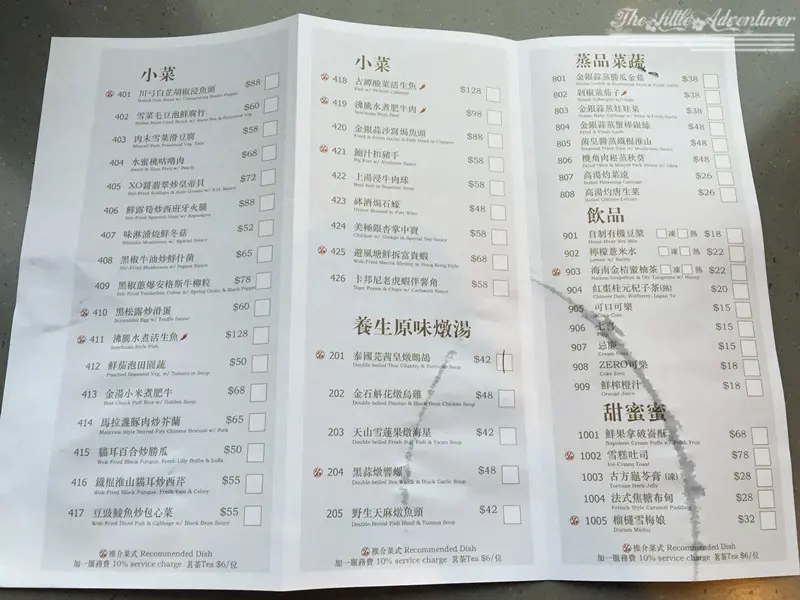 The Little Adventurer
小菜
401 川弓白芷胡椒浸魚頭 $88
402 雪菜毛豆泡鮮腐竹 $60
403 肉末雪菜滑豆腐 $58
404 水蜜桃咕嚕肉 $68
Sweet & Sour Pork w/ Peach
405 XO醬翡翠炒皇帝貝 $72
406 鮮露筍炒西班牙火腿 $88
407 味淋浦燒鮮冬菇 $52
408 黑椒牛油炒鮮什菌 $65
409 黑椒蔥爆安格斯牛柳粒 $78
410 黑松露炒滑蛋 $60
Scrambled Egg w/ Truffle Sauce
411 沸騰水煮活生魚 $128
Szechuan Style Fish
412 鮮茄泡田園蔬 $50
Poached Seasonal Veg. w/ Tomato in Soup
413 金湯小米煮肥牛 $68
Beef Chuck Puff Rice w/ Golden Soup
414 馬拉盞豚肉炒芥蘭 $65
Malaysia Style Stirred Fire Chinese Broccoli w/ Pork
415 貓耳百合炒勝瓜 $50
Wok-Fried Black Fungus, Fresh Lily Bulbs & Luffa
416 鐵棍淮山貓耳炒西芹 $55
Wok-Fried Black Fungus, Fresh Yam & Celery
417 豆豉鯪魚炒包心菜 $55
Wok-Fried Dried Fish & Cabbage w/ Black Bean Sauce
推介菜式 Recommended Dish
加一服務費 10% service charge 茗茶Tea $6/位
小菜
418 古罈酸菜活生魚 $128
419 沸騰水煮肥牛肉 $98
420 金銀蒜沙窩焗魚頭 $88
421 鮑汁扣豬手 $58
Pig Feet w/ Abalone Sauce
422 上湯浸牛肉球 $58
Beef Ball in Superior Soup
423 砵酒焗石蠔 $48
Oyster Roasted in Port Wine
424 美極銀杏掌中寶 $58
425 避風塘鮮拆富貴蝦 $68
Wok-Fried Mantis Shrimp in Hong Kong Style
426 卡邦尼老虎蝦伴薯角 $58
Tiger Prawns & Chips w/ Carbonara Sauce
養生原味燉湯
201 泰國芫茜皇燉鷓鴣 $42
202 金石斛花燉烏雞 $48
203 天山雪蓮果燉海星 $42
204 黑蒜燉響螺 $48
Double-boiled Sea Whelk & Black Garlic Soup
205 野生天麻燉魚頭 $42
Double-Boiled Fish Head & Tianma Soup
推介菜式 Recommended Dish
加一服務費 10% service charge 茗茶Tea $6/位
蒸品菜蔬
801 金銀蒜蒸勝瓜金菇 $38
802 剁椒蒸茄子 $38
803 金銀蒜蒸娃娃菜 $38
804 金銀蒜蒸蟹棒銀絲 $48
805 菌皇醬蒸鐵棍淮山 $48
806 欖角肉崧蒸秋葵 $48
807 高湯灼菜遠 $26
808 高湯灼唐生菜 $26
飲品
901 自制有機豆漿 凍 熱 $18
Home Made Soy Milk
902 檸檬薏米水 凍 熱 $22
Lemon w/ Barley
903 海南金桔蜜柚茶 凍 熱 $22
904 紅棗桂元杞子茶(熱) $20
Chinese Date, Wolfberry, Logan Tea
905 可口可樂 $15
906 七喜 $15
907 忌廉 $15
Cream Soda
908 ZERO可樂 $18
Coke Zero
909 鮮榨橙汁 $18
Orange Juice
甜蜜蜜
1001 鮮果拿破崙酥 $68
Napoleon Cream Puffs w/ Fresh Fruit
1002 雪糕吐司 $78
Ice-Cream Toast
1003 古方龜苓膏 (凍) $28
Tortoise Herb Jelly
1004 法式焦糖布甸 $28
French Style Caramel Pudding
1005 榴槤雪梅娘 $32
Durian Mochi
推介菜式 Recommended Dish
加一服務費 10% service charge 茗茶Tea $6/位